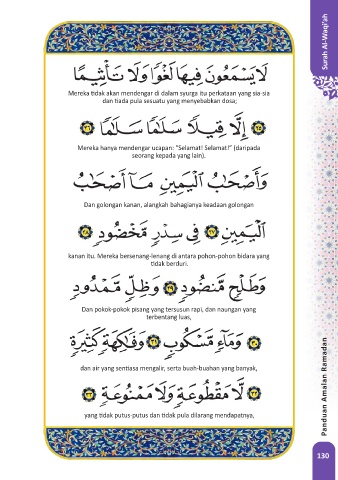 Surah Al-Waqi'ah
لَا يَسْمَعُونَ فِيهَا لَغْوًا وَلَا تَأْثِيمًا
Mereka tidak akan mendengar di dalam syurga itu perkataan yang sia-sia
dan tiada pula sesuatu yang menyebabkan dosa;
٢٥ إِلَّا قِيلًا سَلَامًا سَلَامًا ٢٦
Mereka hanya mendengar ucapan: "Selamat! Selamat!" (daripada
seorang kepada yang lain).
وَأَصْحَابُ ٱلْيَمِينِ مَآ أَصْحَابُ
Dan golongan kanan, alangkah bahagianya keadaan golongan
ٱلْيَمِينِ ٢٧ فِي سِدْرٍ مَّخْضُودٍ ٢٨
kanan itu. Mereka bersenang-lenang di antara pohon-pohon bidara yang
tidak berduri.
وَطَلْحٍ مَّنضُودٍ ٢٩ وَظِلٍّ مَّمْدُودٍ
Dan pokok-pokok pisang yang tersusun rapi, dan naungan yang
terbentang luas,
٣٠ وَمَآءٍ مَّسْكُوبٍ ٣١ وَفَاكِهَةٍ كَثِيرَةٍ
dan air yang sentiasa mengalir, serta buah-buahan yang banyak,
٣٢ لَّا مَقْطُوعَةٍ وَلَا مَمْنُوعَةٍ ٣٣
yang tidak putus-putus dan tidak pula dilarang mendapatnya,
Panduan Amalan Ramadan
130